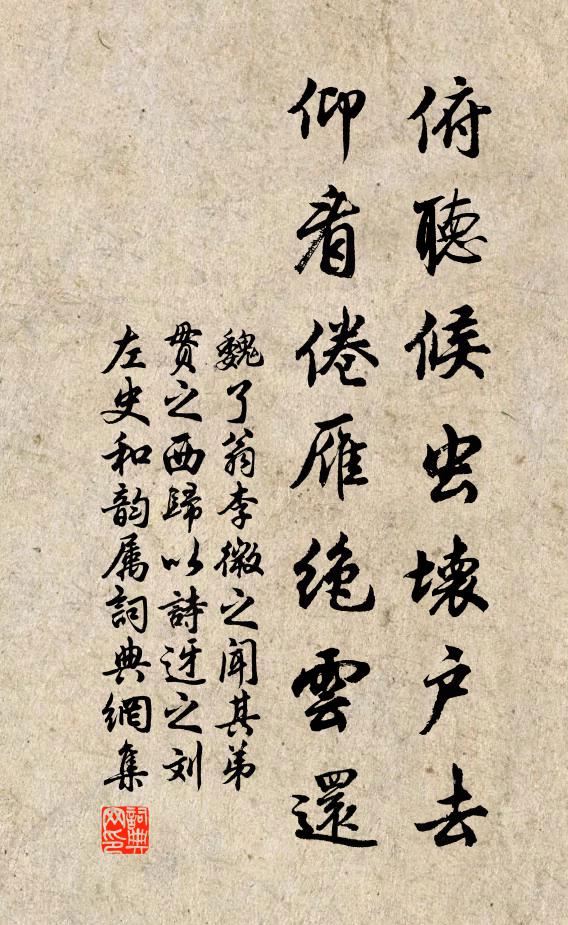 俯聽候虫壞户去
仰看倦雁绝雲還
魏了翁李微之闻其弟
贯之西歸以詩迓之刘
左史和韵属詞典網集
詞典网印